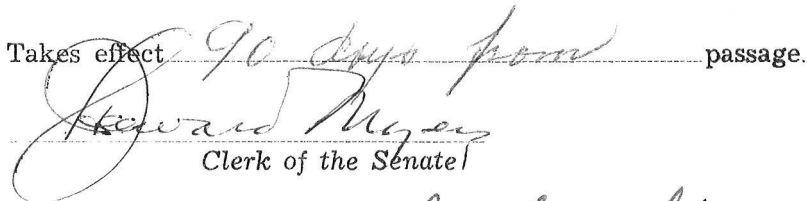 Takes effect 90 days from passage.
J Howard Myers
Clerk of the Senate